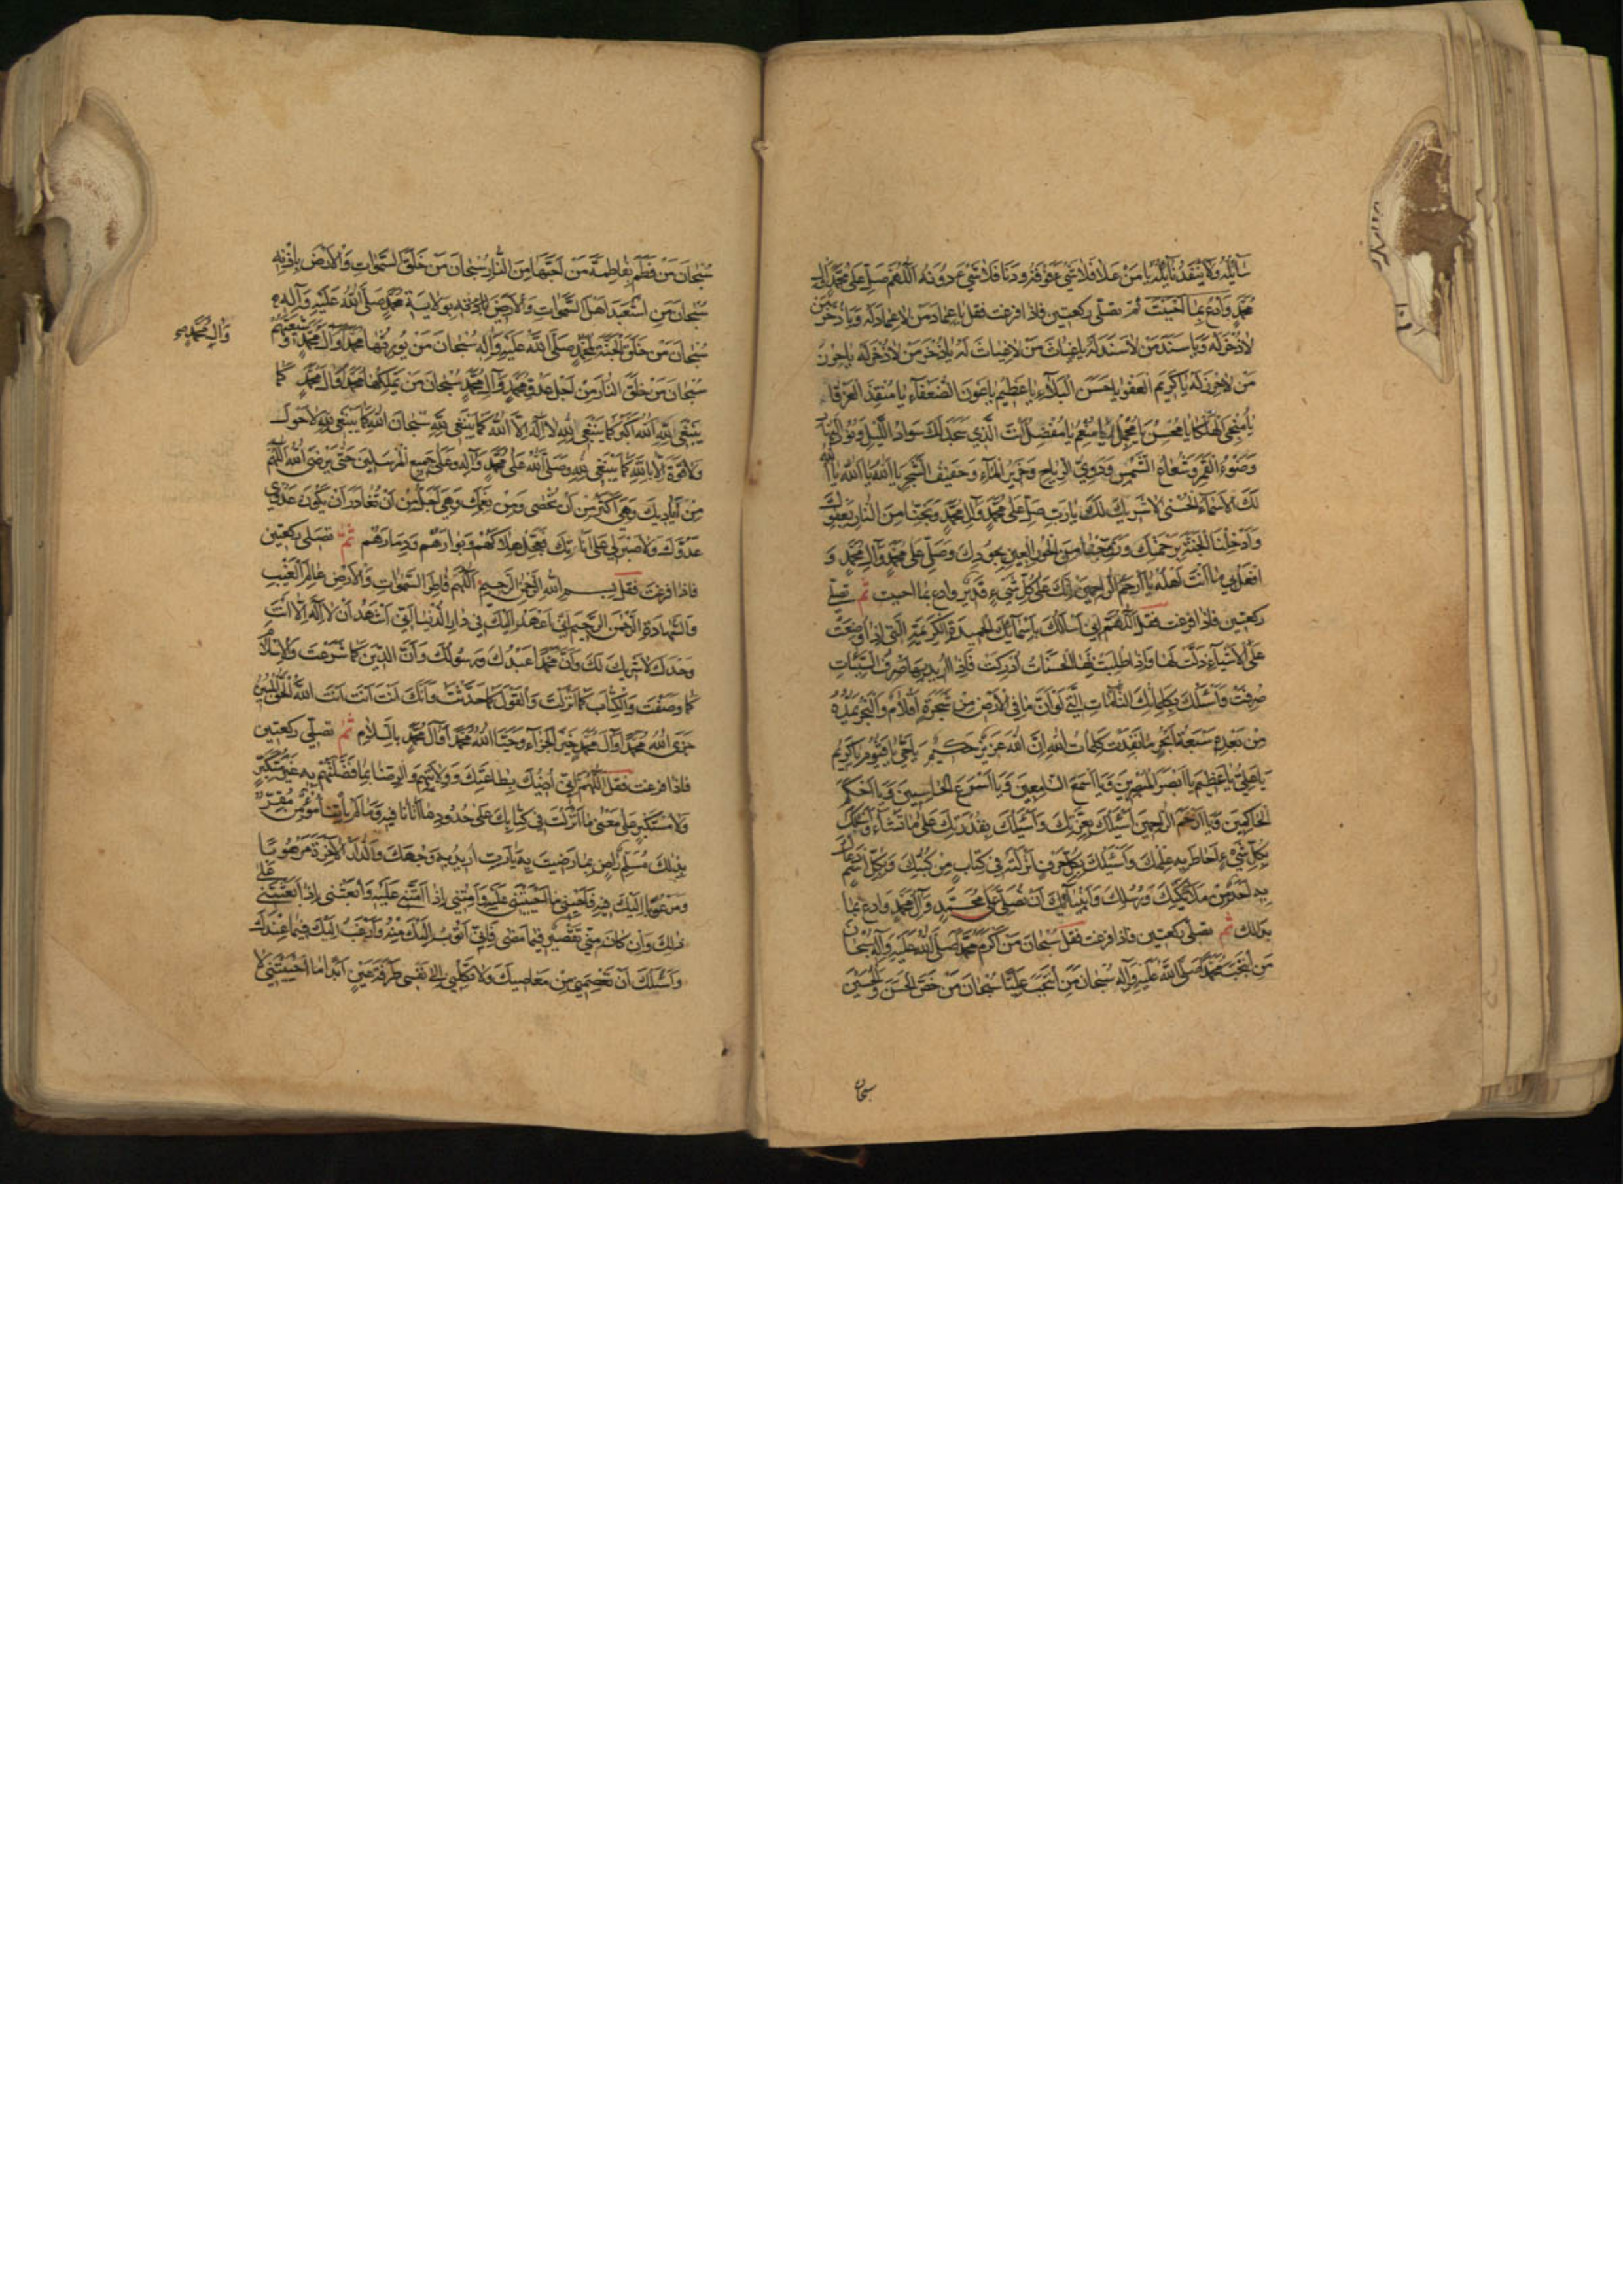 سَائِلُهُ وَلَا يَنْفَدُ نَائِلُهُ يَا مَنْ عَلَا فَلَا شَيْءَ فَوْقَهُ وَدَنَا فَلَا شَيْءَ دُونَهُ اَللّٰهُمَّ صَلِّ عَلٰى مُحَمَّدٍ وَآلِ
مُحَمَّدٍ وَادْعُ بِمَا اَحْبَبْتَ ثم تصلّي ركعتين فاذا فرغت فقل يَا عِمَادَ مَنْ لَا عِمَادَ لَهُ وَيَا ذُخْرَ مَنْ
لَا ذُخْرَ لَهُ وَيَا سَنَدَ مَنْ لَا سَنَدَ لَهُ يَا غِيَاثَ مَنْ لَا غِيَاثَ لَهُ يَا ذُخْرَ مَنْ لَا ذُخْرَ لَهُ يَا حِرْزَ
مَنْ لَا حِرْزَ لَهُ يَا كَرِيمَ الْعَفْوِ يَا حَسَنَ الْبَلَاءِ يَا عَظِيمَ يَا عَوْنَ الضُّعَفَاءِ يَا مُنْقِذَ الْغَرْقَى
يَا مُنْجِيَ الْهَلْكَى يَا مُحْسِنُ يَا مُجْمِلُ يَا مُنْعِمُ يَا مُفْضِلُ اَنْتَ الَّذِي سَجَدَ لَكَ سَوَادُ اللَّيْلِ وَنُورُ النَّهَارِ
وَضَوْءُ الْقَمَرِ وَشُعَاعُ الشَّمْسِ وَدَوِيُّ الرِّيَاحِ وَخَرِيرُ الْمَاءِ وَحَفِيفُ الشَّجَرِ يَا اَللّٰهُ يَا اَللّٰهُ يَا اَللّٰهُ
لَكَ الْاَسْمَاءُ الْحُسْنٰى لَا شَرِيكَ لَكَ يَا رَبِّ صَلِّ عَلٰى مُحَمَّدٍ وَآلِ مُحَمَّدٍ وَنَجِّنَا مِنَ النَّارِ بِعَفْوِكَ
وَاَدْخِلْنَا الْجَنَّةَ بِرَحْمَتِكَ وَزَوِّجْنَا مِنَ الْحُورِ الْعِينِ بِجُودِكَ وَصَلِّ عَلٰى مُحَمَّدٍ وَآلِ مُحَمَّدٍ وَ
افْعَلْ بِي مَا اَنْتَ اَهْلُهُ يَا اَرْحَمَ الرَّاحِمِينَ اِنَّكَ عَلٰى كُلِّ شَيْءٍ قَدِيرٌ وادع بما احببت ثم تصلي
ركعتين فاذا فرغت فقل اَللّٰهُمَّ اِنِّي اَسْاَلُكَ بِاَسْمَائِكَ الْحَمِيدَةِ الْكَرِيمَةِ الَّتِي اِذَا وُضِعَتْ
عَلَى الْاَشْيَاءِ ذَلَّتْ لَهَا وَاِذَا طُلِبَتْ بِهَا الْحَسَنَاتُ اُدْرِكَتْ وَاِذَا اُرِيدَ بِهَا صَرْفُ السَّيِّئَاتِ
صُرِفَتْ وَاَسْئَلُكَ بِكَلِمَاتِكَ التَّامَّاتِ الَّتِي لَوْ اَنَّ مَا فِي الْاَرْضِ مِنْ شَجَرَةٍ اَقْلَامٌ وَالْبَحْرُ يَمُدُّهُ
مِنْ بَعْدِهِ سَبْعَةُ اَبْحُرٍ مَا نَفِدَتْ كَلِمَاتُ اللّٰهِ اِنَّ اللّٰهَ عَزِيزٌ حَكِيمٌ يَا حَيُّ يَا قَيُّومُ يَا كَرِيمُ
يَا عَلِيُّ يَا عَظِيمُ يَا اَبْصَرَ الْمُبْصِرِينَ وَيَا اَسْمَعَ السَّامِعِينَ وَيَا اَسْرَعَ الْحَاسِبِينَ وَيَا اَحْكَمَ
الْحَاكِمِينَ وَيَا اَرْحَمَ الرَّاحِمِينَ اَسْئَلُكَ بِعِزَّتِكَ وَاَسْئَلُكَ بِقُدْرَتِكَ عَلٰى مَا تَشَاءُ وَاَسْئَلُكَ
بِكُلِّ شَيْءٍ اَحَاطَ بِهِ عِلْمُكَ وَاَسْئَلُكَ بِكُلِّ حَرْفٍ اَنْزَلْتَهُ فِي كِتَابٍ مِنْ كُتُبِكَ وَبِكُلِّ اسْمٍ دَعَاكَ
بِهِ اَحَدٌ مِنْ مَلَائِكَتِكَ وَرُسُلِكَ وَاَنْبِيَائِكَ اَنْ تُصَلِّيَ عَلٰى مُحَمَّدٍ وَآلِ مُحَمَّدٍ وادع بما
بدالك ثم تصلي ركعتين فاذا فرغت فقل سُبْحَانَ مَنْ اَكْرَمَ مُحَمَّدًا صَلَّى اللّٰهُ عَلَيْهِ وَآلِهِ سُبْحَانَ
مَنِ انْتَجَبَ مُحَمَّدًا صَلَّى اللّٰهُ عَلَيْهِ وَآلِهِ سُبْحَانَ مَنِ انْتَجَبَ عَلِيًّا سُبْحَانَ مَنْ خَصَّ الْحَسَنَ وَالْحُسَيْنَ
سبحان
سُبْحَانَ مَنْ فَطَمَ بِفَاطِمَةَ مَنْ اَحَبَّهَا مِنَ النَّارِ سُبْحَانَ مَنْ خَلَقَ السَّمٰوَاتِ وَالْاَرْضَ بِاِذْنِهِ
سُبْحَانَ مَنِ اسْتَعْبَدَ اَهْلَ السَّمٰوَاتِ وَالْاَرَضِينَ بِوِلَايَةِ مُحَمَّدٍ صَلَّى اللّٰهُ عَلَيْهِ وَآلِهِ
وَآلِ مُحَمَّدٍ
سُبْحَانَ مَنْ خَلَقَ الْجَنَّةَ لِمُحَمَّدٍ صَلَّى اللّٰهُ عَلَيْهِ وَآلِهِ سُبْحَانَ مَنْ يُورِثُهَا مُحَمَّدًا وَآلَ مُحَمَّدٍ وَشِيعَتَهُمْ
سُبْحَانَ مَنْ خَلَقَ النَّارَ مِنْ اَجْلِ عَدُوِّ مُحَمَّدٍ وَآلِ مُحَمَّدٍ سُبْحَانَ مَنْ يُمَلِّكُهَا مُحَمَّدًا وَآلَ مُحَمَّدٍ كَمَا
يَنْبَغِي لِلّٰهِ اَللّٰهُ اَكْبَرُ كَمَا يَنْبَغِي لِلّٰهِ لَا اِلٰهَ اِلَّا اللّٰهُ كَمَا يَنْبَغِي لِلّٰهِ سُبْحَانَ اللّٰهِ كَمَا يَنْبَغِي لِلّٰهِ لَا حَوْلَ
وَلَا قُوَّةَ اِلَّا بِاللّٰهِ كَمَا يَنْبَغِي لِلّٰهِ وَصَلَّى اللّٰهُ عَلٰى مُحَمَّدٍ وَآلِهِ وَعَلٰى جَمِيعِ الْمُرْسَلِينَ حَتّٰى يَرْضَى اللّٰهُ اَللّٰهُمَّ
مِنْ اَيَادِيكَ وَهِيَ اَكْثَرُ مِنْ اَنْ تُحْصٰى وَمِنْ نِعَمِكَ وَهِيَ اَجَلُّ مِنْ اَنْ تُغَادَرَ اَنْ يَكُونَ عَدُوِّي
عَدُوَّكَ وَلَا صَبْرَ لِي عَلٰى اَنَاتِكَ فَعَجِّلْ هَلَاكَهُمْ وَبَوَارَهُمْ وَدِمَارَهُمْ ثم تصلي ركعتين
فاذا فرغت فقل بِسْمِ اللّٰهِ الرَّحْمٰنِ الرَّحِيمِ اَللّٰهُمَّ فَاطِرَ السَّمٰوَاتِ وَالْاَرْضِ عَالِمَ الْغَيْبِ
وَالشَّهَادَةِ الرَّحْمٰنَ الرَّحِيمَ اِنِّي اَعْهَدُ اِلَيْكَ فِي دَارِ الدُّنْيَا اَنِّي اَشْهَدُ اَنْ لَا اِلٰهَ اِلَّا اَنْتَ
وَحْدَكَ لَا شَرِيكَ لَكَ وَاَنَّ مُحَمَّدًا عَبْدُكَ وَرَسُولُكَ وَاَنَّ الدِّينَ كَمَا شَرَعْتَ وَالْاِسْلَامَ
كَمَا وَصَفْتَ وَالْكِتَابَ كَمَا اَنْزَلْتَ وَالْقَوْلَ كَمَا حَدَّثْتَ وَاَنَّكَ اَنْتَ اَنْتَ اَنْتَ اللّٰهُ الْحَقُّ الْمُبِينُ
جَزَى اللّٰهُ مُحَمَّدًا وَآلَ مُحَمَّدٍ خَيْرَ الْجَزَاءِ وَحَيَّا اللّٰهُ مُحَمَّدًا وَآلَ مُحَمَّدٍ بِالسَّلَامِ ثم تصلّي ركعتين
فاذا فرغت فقل اَللّٰهُمَّ اِنِّي اَدِينُكَ بِطَاعَتِكَ وَوِلَايَتِهِمْ وَالرِّضَا بِمَا فَضَّلْتَهُمْ بِهِ غَيْرَ مُتَكَبِّرٍ
وَلَا مُسْتَكْبِرٍ عَلٰى مَعْنٰى مَا اَنْزَلْتَ فِي كِتَابِكَ عَلٰى حُدُودِ مَا اَتَانَا فِيهِ وَمَا لَمْ يَأْتِنَا مُؤْمِنٌ مُقِرٌّ
بِذٰلِكَ مُسَلِّمٌ رَاضٍ بِمَا رَضِيتَ بِهِ يَا رَبِّ اُرِيدُ بِهِ وَجْهَكَ وَالدَّارَ الْآخِرَةَ مَرْهُوبًا
وَمَرْغُوبًا اِلَيْكَ فِيهِ فَاَحْيِنِي مَا اَحْيَيْتَنِي عَلَيْهِ وَاَمِتْنِي اِذَا اَمَتَّنِي عَلَيْهِ وَابْعَثْنِي اِذَا بَعَثْتَنِي عَلٰى
ذٰلِكَ وَاِنْ كَانَ مِنِّي تَقْصِيرٌ فِيمَا مَضٰى فَاِنِّي اَتُوبُ اِلَيْكَ مِنْهُ وَاَرْغَبُ اِلَيْكَ فِيمَا عِنْدَكَ
وَاَسْئَلُكَ اَنْ تَعْصِمَنِي مِنْ مَعَاصِيكَ وَلَا تَكِلْنِي اِلٰى نَفْسِي طَرْفَةَ عَيْنٍ اَبَدًا مَا اَحْيَيْتَنِي لَا